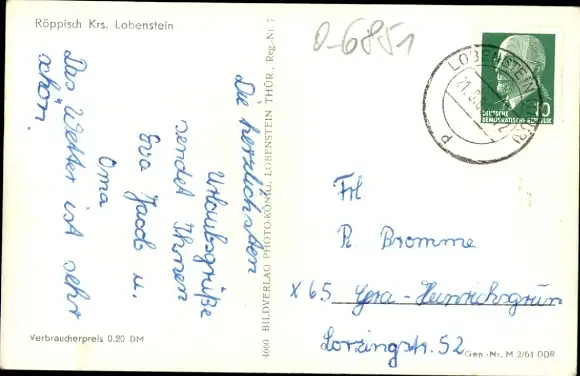 Röppisch Krs. Lobenstein
Die herzlichsten
Urlaubsgrüße
sendet Ihnen
Eva Jacob u.
Oma
Das Wetter ist sehr
schön.
Verbraucherpreis 0.20 DM
4660 BILDVERLAG PHOTO-KÖNIG, LOBENSTEIN THÜR., Reg.-Nr. 7
0-6851
LOBENSTEIN
10
DEUTSCHE
DEMOKRATISCHE REPUBLIK
Frl.
R. Bromme
X 65 Gera-Heinrichsgrün
Lorzingstr. 52
Gen.-Nr. M 2/64 DDR